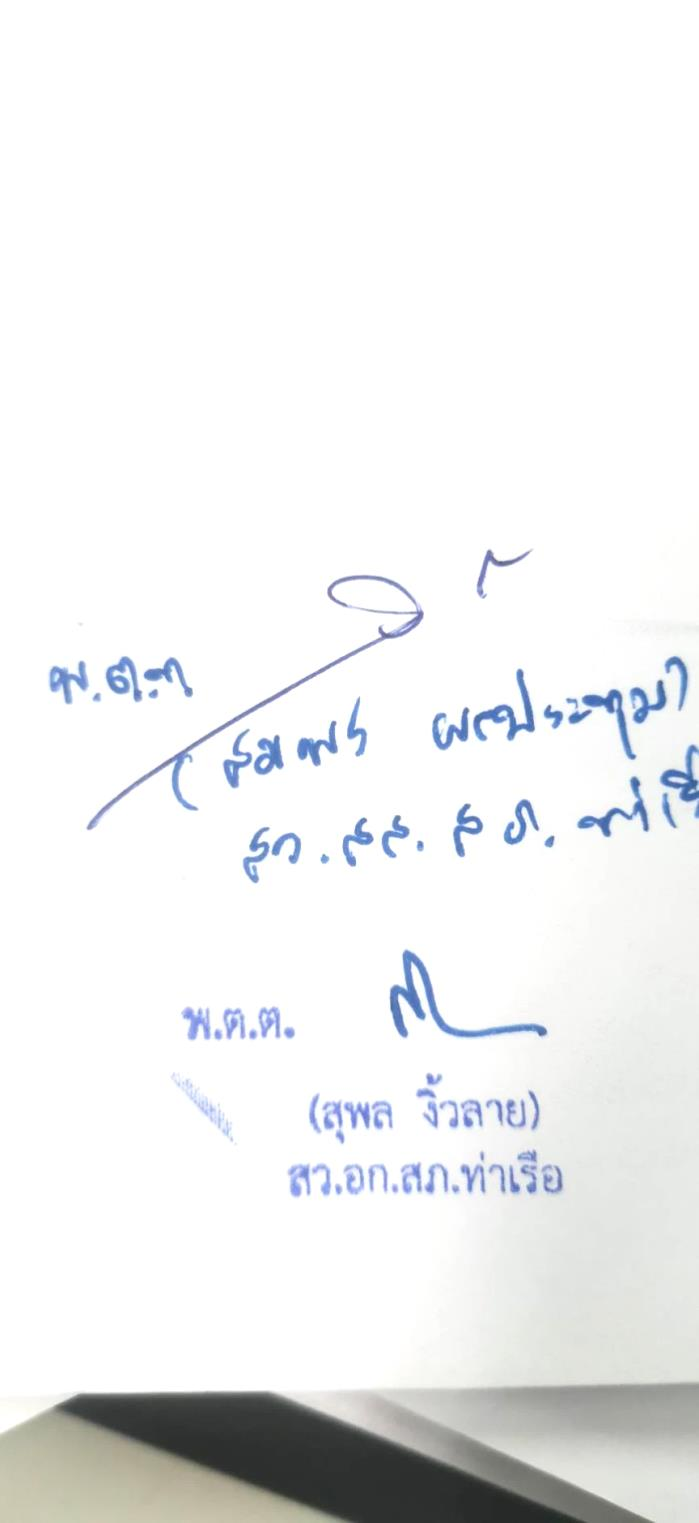 พ.ต.ท
(สมพร ผลประทุม)
สว.สส.สภ.ท่าเรื
พ.ต.ต.
(สุพล งิ้วลาย)
สว.อก.สภ.ท่าเรือ